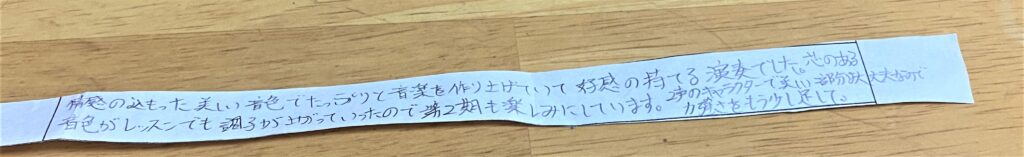 情感のこもった美しい音色でたっぷりと音楽を作り上げていて好感の持てる演奏でした。芯のある
音色がレッスンでも調子が上がっていったので第2期も楽しみにしています。
キャラクターで美しい部分は大丈夫なので
力強さをもう少し足して。